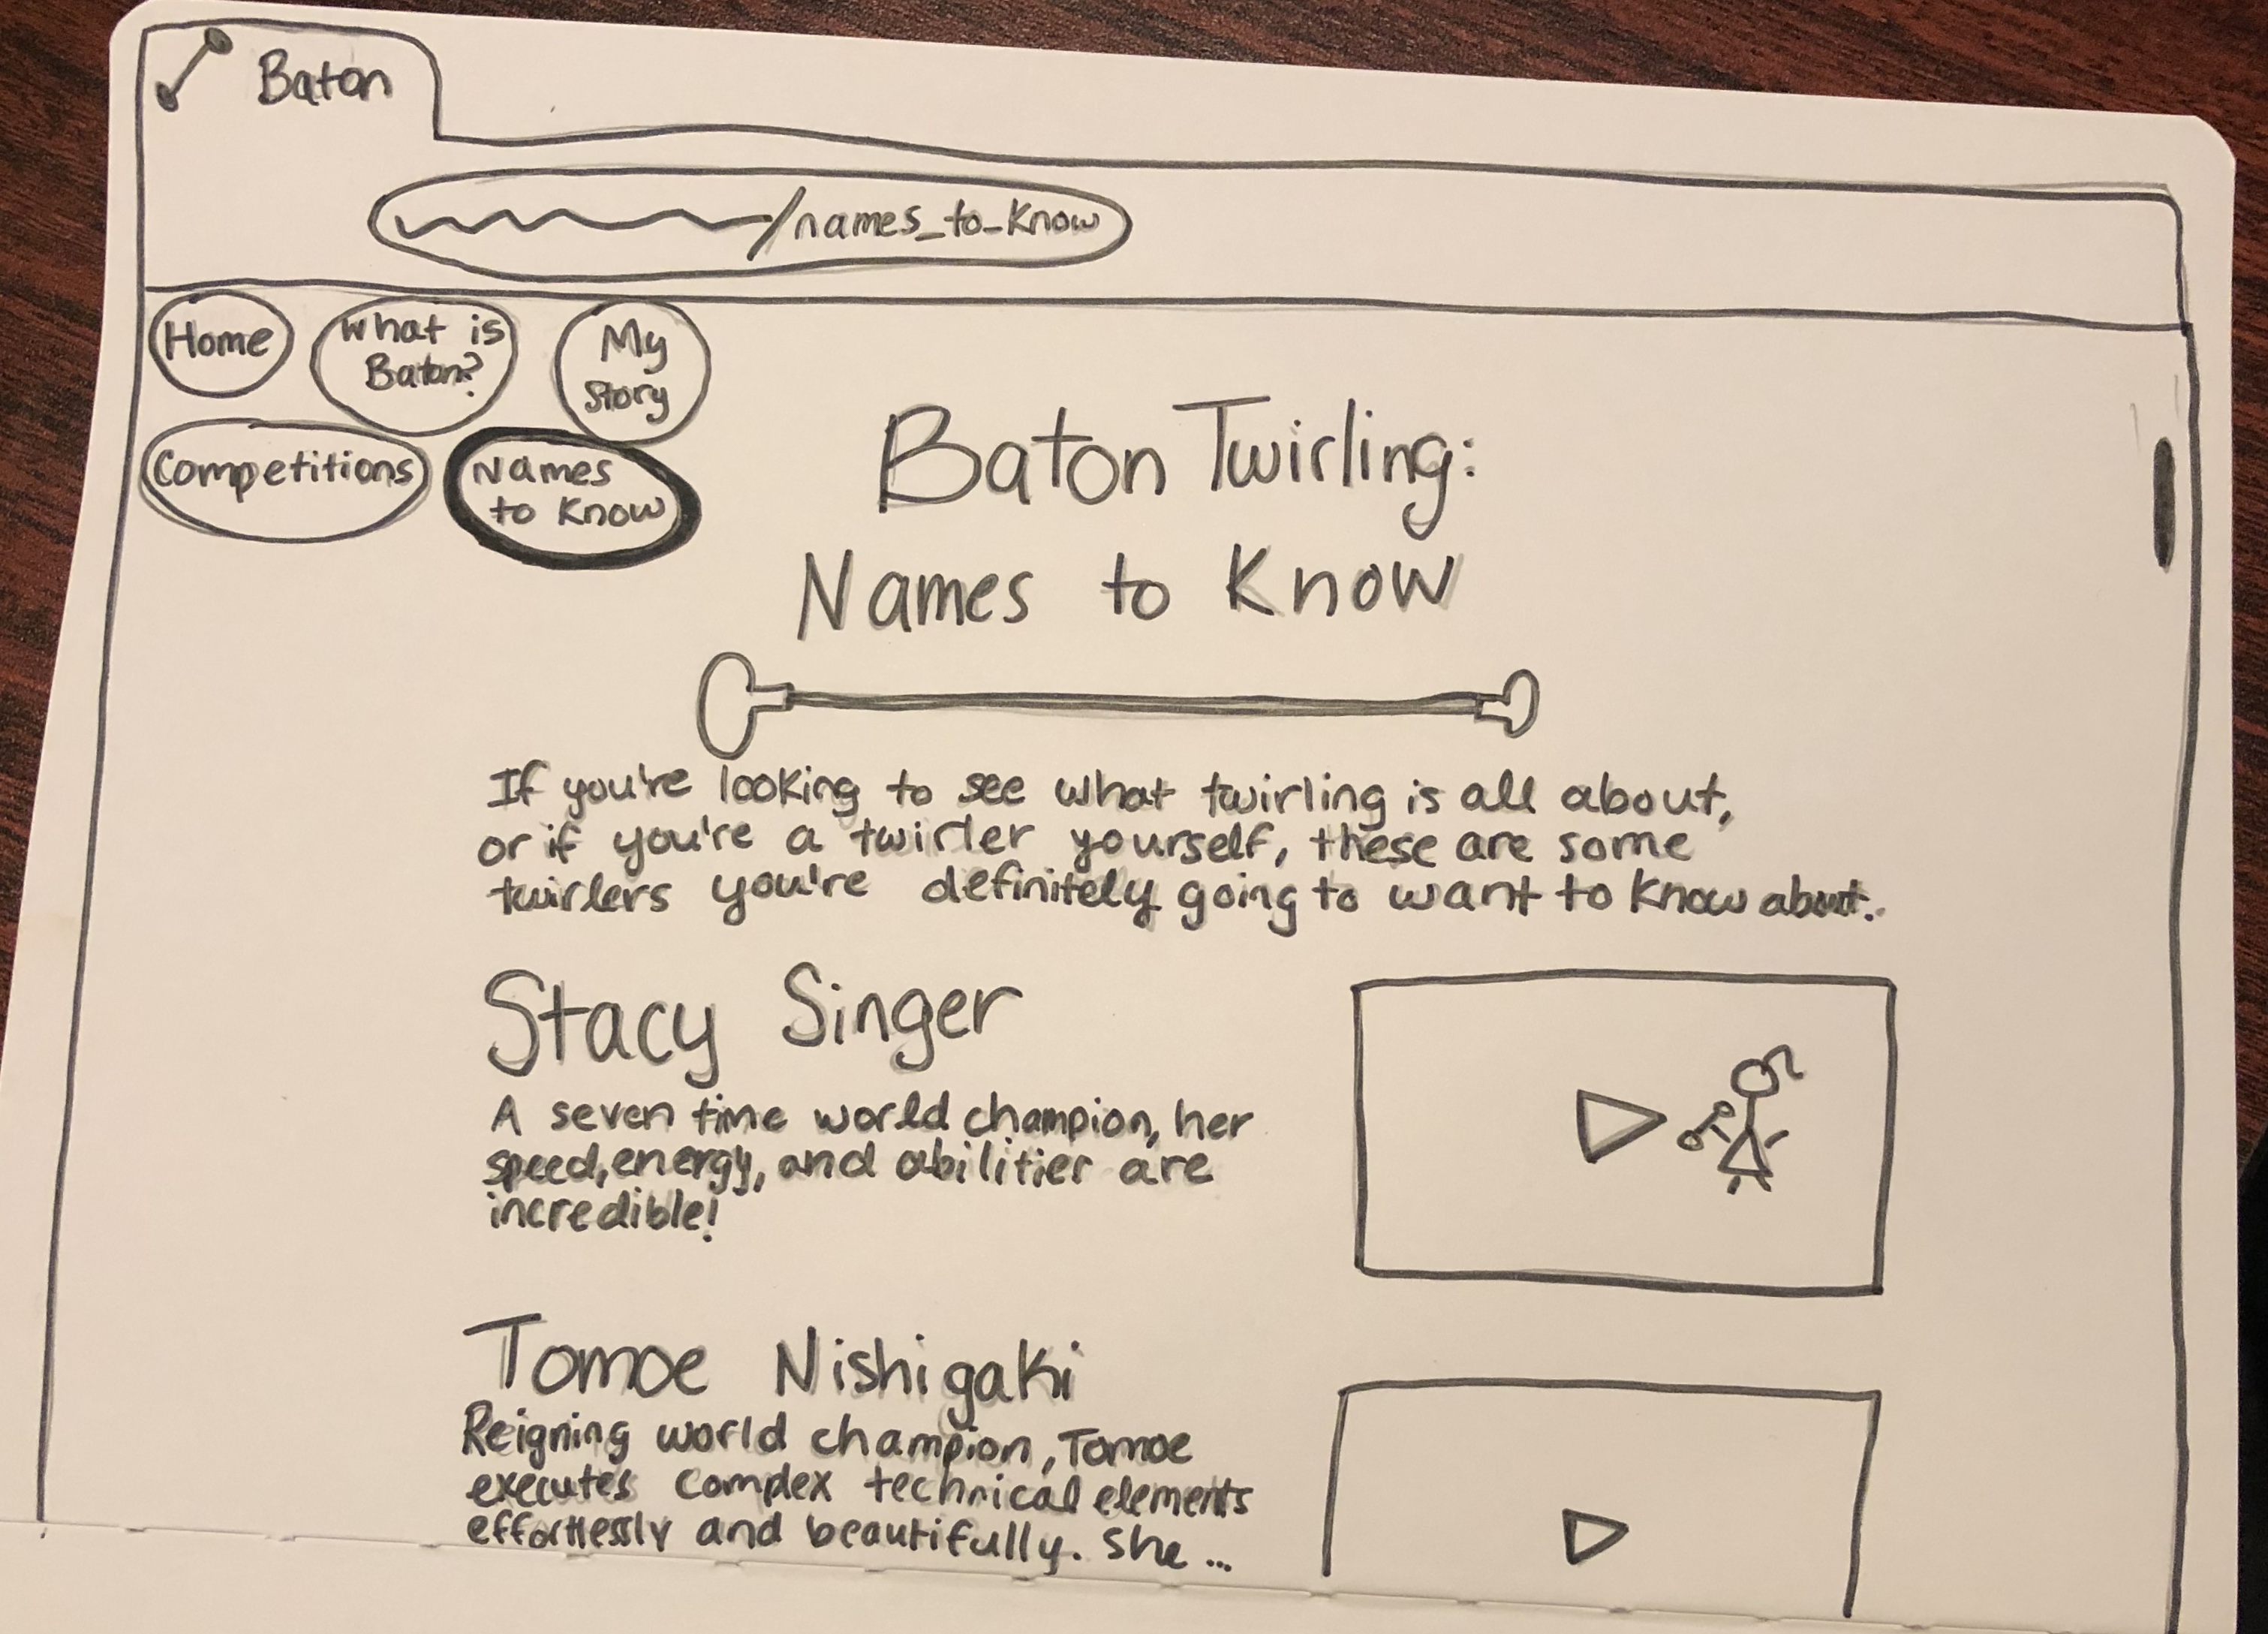 Baton
/names_to_know
Home
What is
Baton?
My
Story
Competitions
Names
to Know
Baton Twirling:
Names to Know
If you're looking to see what twirling is all about,
or if you're a twirler yourself, these are some
twirlers you're definitely going to want to know about.
Stacy Singer
A seven time world champion, her
speed, energy, and abilitier are
incredible!
Tomoe Nishigaki
Reigning world champion, Tomoe
executes complex technical elements
effortlessly and beautifully. She ...